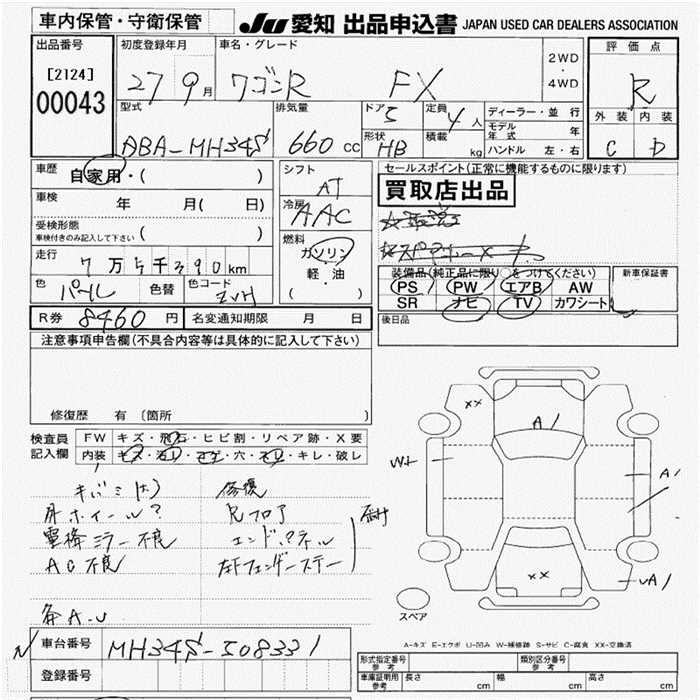 車内保管・守衛保管
JU 愛知 出品申込書 JAPAN USED CAR DEALERS ASSOCIATION
出品番号
[2124]
00043
初度登録年月
27 9月
車名・グレード
ワゴンR FX
2WD
・
4WD
評価点
R
外装 内装
C D
型式
ABA-MH34S
排気量
660 cc
ドア 5
形状 HB
定員 4 人
積載 kg
ディーラー・並行
モデル年式 年
ハンドル 左・右
車歴
自家用・( )
車検
年 月( 日)
受検形態
車検付きのみ記入して下さい ( )
走行
7万5千390km
色 パール 色替 色コード ZVH
シフト
AT
冷房
AAC
燃料
ガソリン
軽・油
( )
セールスポイント(正常に機能するものに限ります)
買取店出品
装備品(純正品に限り○をつけてください)
PS PW エアB AW
SR ナビ TV カワシート
新車保証書
後日品
R券 8460 円 名変通知期限 月 日
注意事項申告欄(不具合内容等は具体的に記入して下さい)
修復歴 有 〔箇所 〕
検査員記入欄
FW キズ・飛石・ヒビ割・リペア跡・X要
内装 キズ・汚れ・コゲ・穴・スリ・キレ・破レ
キバミ(大)
月ホイール?
電格ミラー不良
AC不良
各A.U
修復
Rフロア
エンドパネル
左Fフェンダーステー
XX
A1
W1
A1
XX
UA1
スペア
A-キズ E-エクボ U-凹み W-補修跡 S-サビ C-腐食 XX-交換済
車台番号 MH34S-508331
登録番号
形式指定番号 参考
類別区分番号 参考
車庫証明用 参考 長さ cm 幅 cm 高さ cm